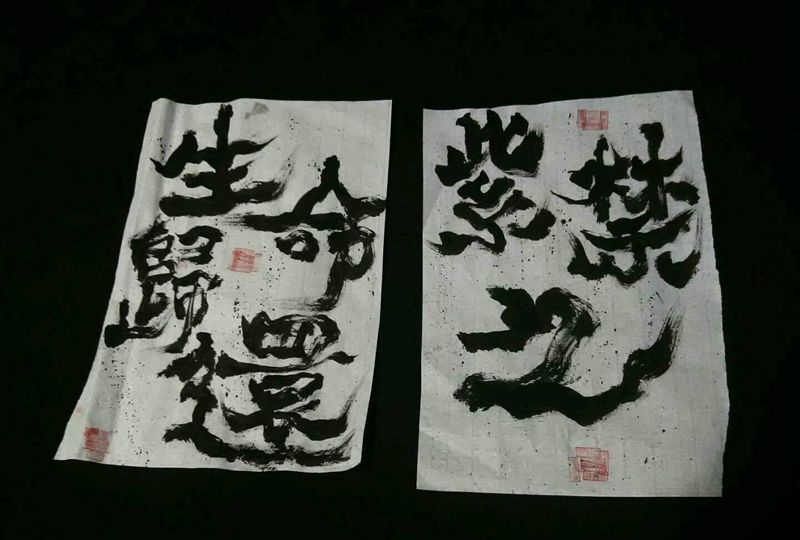 生命
歸還
紫禁
之